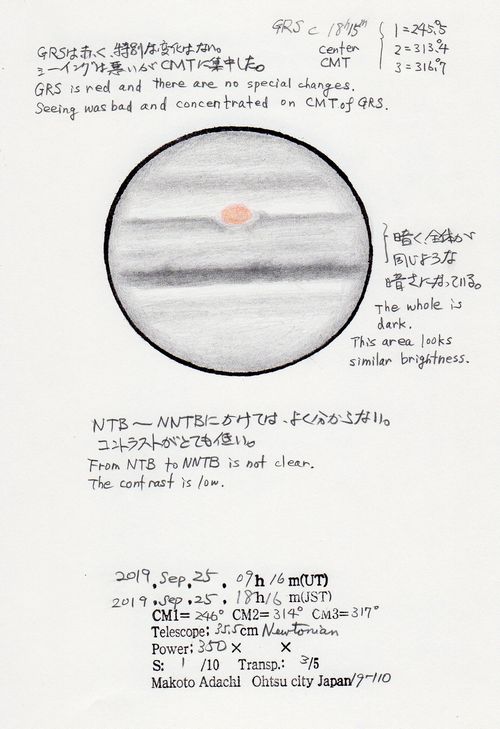 GRS c 18h15m
center
CMT
1=245°.5
2=313°.4
3=316°.7
GRSは赤く、特別な変化はない。
シーイングは悪いがCMTに集中した。
GRS is red and there are no special changes.
Seeing was bad and concentrated on CMT of GRS.
暗く、全体が
同じような
暗さになっている。
The whole is
dark.
This area looks
similar brightness.
NTB～NNTBにかけては、よく分からない。
コントラストがとても低い。
From NTB to NNTB is not clear.
The contrast is low.
2019.Sep.25. 09h 16 m(UT)
2019.Sep.25. 18h16 m(JST)
CM1= 246° CM2= 314° CM3= 317°
Telescope: 35.5cm Newtonian
Power: 350 × ×
S: 1 /10 Transp.: 3/5
Makoto Adachi Ohtsu city Japan/9-110